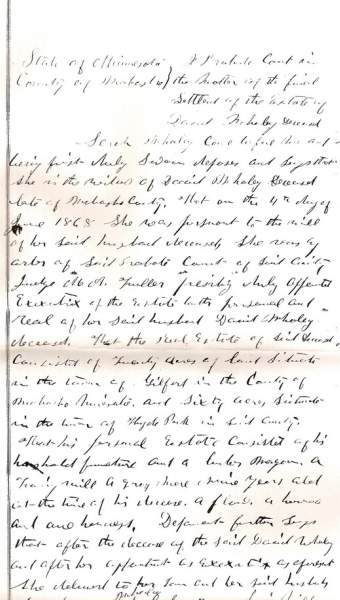 State of Minnesota } In Probate Court in
County of Wabasha } the Matter of the final
Settlement of the Estate of
David Whaley Deceased
Sarah Whaley Came before this and
being first duly Sworn deposes and Says that
She is the widow of David Whaley Deceased
late of Wabasha County. That on the 4th day of
June 1868 She was pursuant to the will
of her Said husband deceased She was by
order of Said Probate Court of Said County
Judge Fuller presiding duly Appointed
Executrix of the Estate both personal and
real of her Said husband David Whaley
deceased. That the Real Estate of Said Deceased
Consisted of Twenty Acres of land Situate
in the town of Gilford in the County of
Wabasha Minnesota and Sixty acres Situate
in the town of Hyde Park in Said County.
That his personal Estate Consisted of his
household furniture and a lumber Waggon. A
mill A Grey Mare nine Years old
at the time of his decease. A plow, a harrow
and one harness. Deponent further Says
that after the decease of the Said David Whaley
and after her appointment as Executrix as aforesaid
She delivered to her Son and her Said husbands